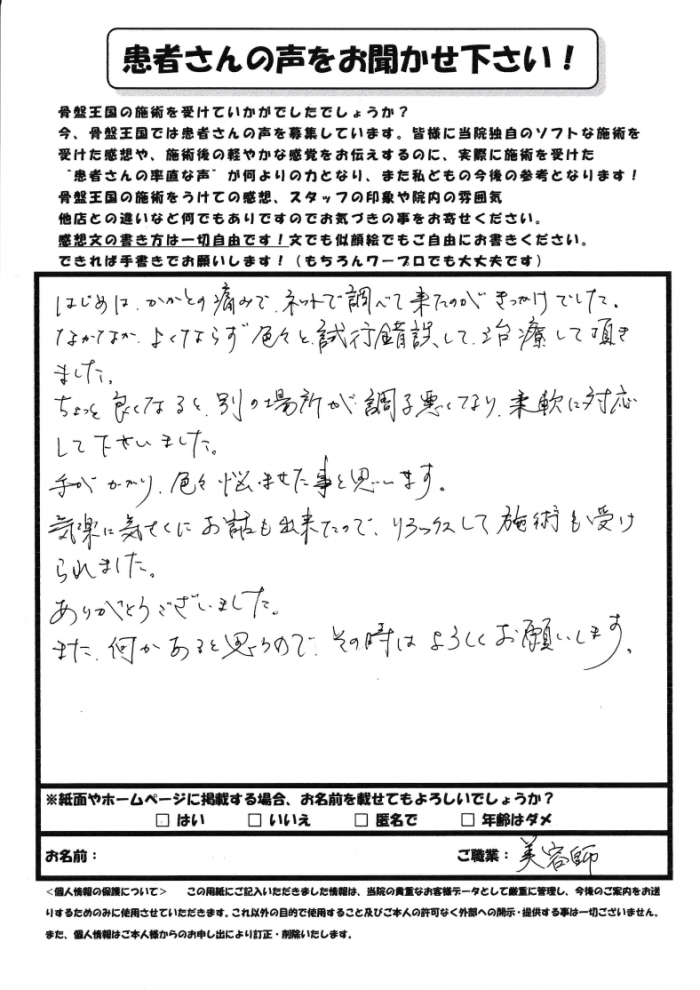 患者さんの声をお聞かせ下さい！
骨盤王国の施術を受けていかがでしたでしょうか？
今、骨盤王国では患者さんの声を募集しています。皆様に当院独自のソフトな施術を
受けた感想や、施術後の軽やかな感覚をお伝えするのに、実際に施術を受けた
"患者さんの率直な声"が何よりの力となり、また私どもの今後の参考となります！
骨盤王国の施術をうけての感想、スタッフの印象や院内の雰囲気
他店との違いなど何でもありですのでお気づきの事をお寄せください。
感想文の書き方は一切自由です！文でも似顔絵でもご自由にお書きください。
できれば手書きでお願いします！（もちろんワープロでも大丈夫です）
はじめは、かかとの痛みで、ネットで調べて来たのがきっかけでした。
なかなか、よくならず色々と試行錯誤して、治療して頂き
ました。
ちょっと良くなると、別の場所が調子悪くなり、柔軟に対応
して下さいました。
手がかかり、色々悩ませた事と思います。
気楽に気さくにお話も出来たので、リラックスして施術も受け
られました。
ありがとうございました。
また、何かあると思うので、その時はよろしくお願いします。
※紙面やホームページに掲載する場合、お名前を載せてもよろしいでしょうか？
□ はい □ いいえ □ 匿名で □ 年齢はダメ
お名前： ご職業：美容師
＜個人情報の保護について＞ この用紙にご記入いただきました情報は、当院の貴重なお客様データとして厳重に管理し、今後のご案内をお送
りするためのみに使用させていただきます。これ以外の目的で使用すること及びご本人の許可なく外部への開示・提供する事は一切ございません。
また、個人情報はご本人様からのお申し出により訂正・削除いたします。